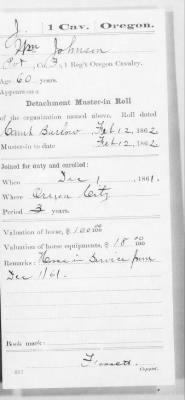 J. 1 Cav. Oregon.
Wm Johnson
Pvt, Co. 1 Reg't Oregon Cavalry.
Age 60 years.
Appears on a
Detachment Muster-in Roll
of the organization named above. Roll dated
Camp Barlow, Feb 12, 1862
Muster-in to date Feb 12, 1862.
Joined for duty and enrolled:
When Dec 1, 1861.
Where Oregon City
Period 3 years.
Valuation of horse, $ 100 00/100
Valuation of horse equipments, $ 18 00/100
Remarks: Horse in Service from
Dec 1/61.
Book mark:
Copyist.